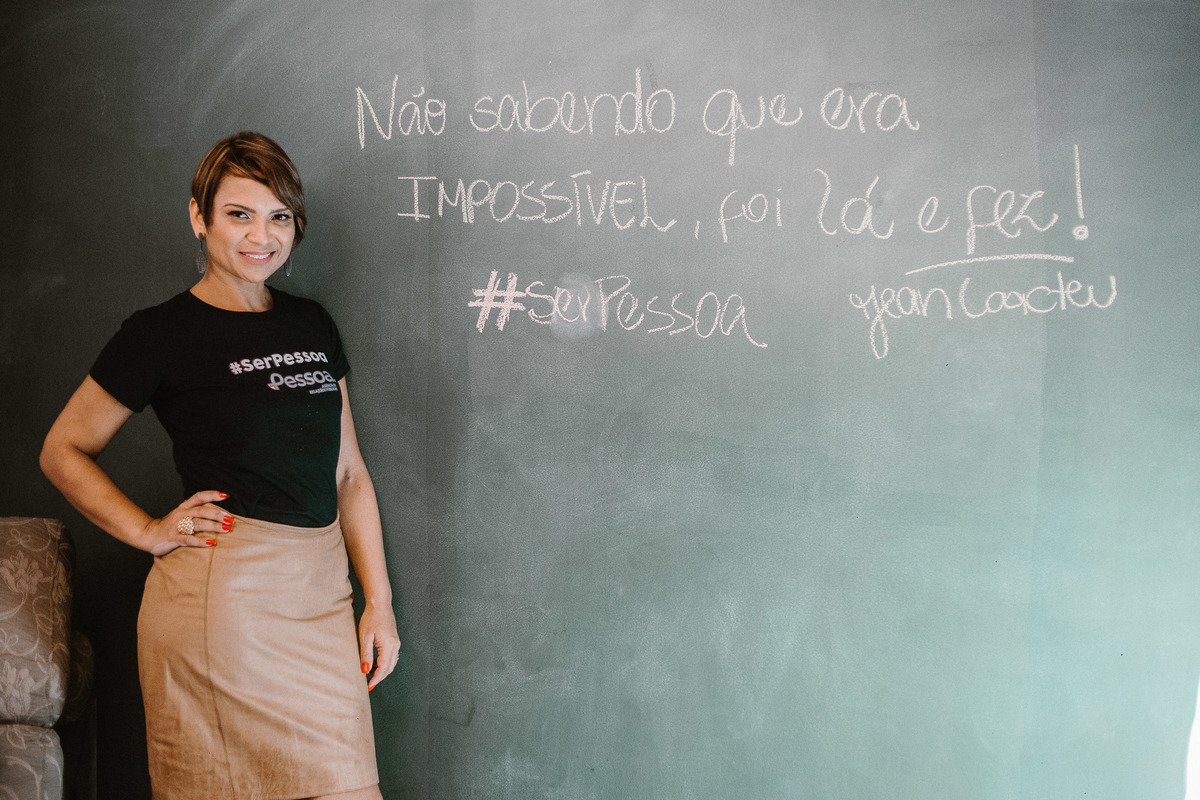 Não sabendo que era
IMPOSSÍVEL, foi lá e fez!
#SerPessoa
Jean Cocteu
#serPessoa
Pessoa